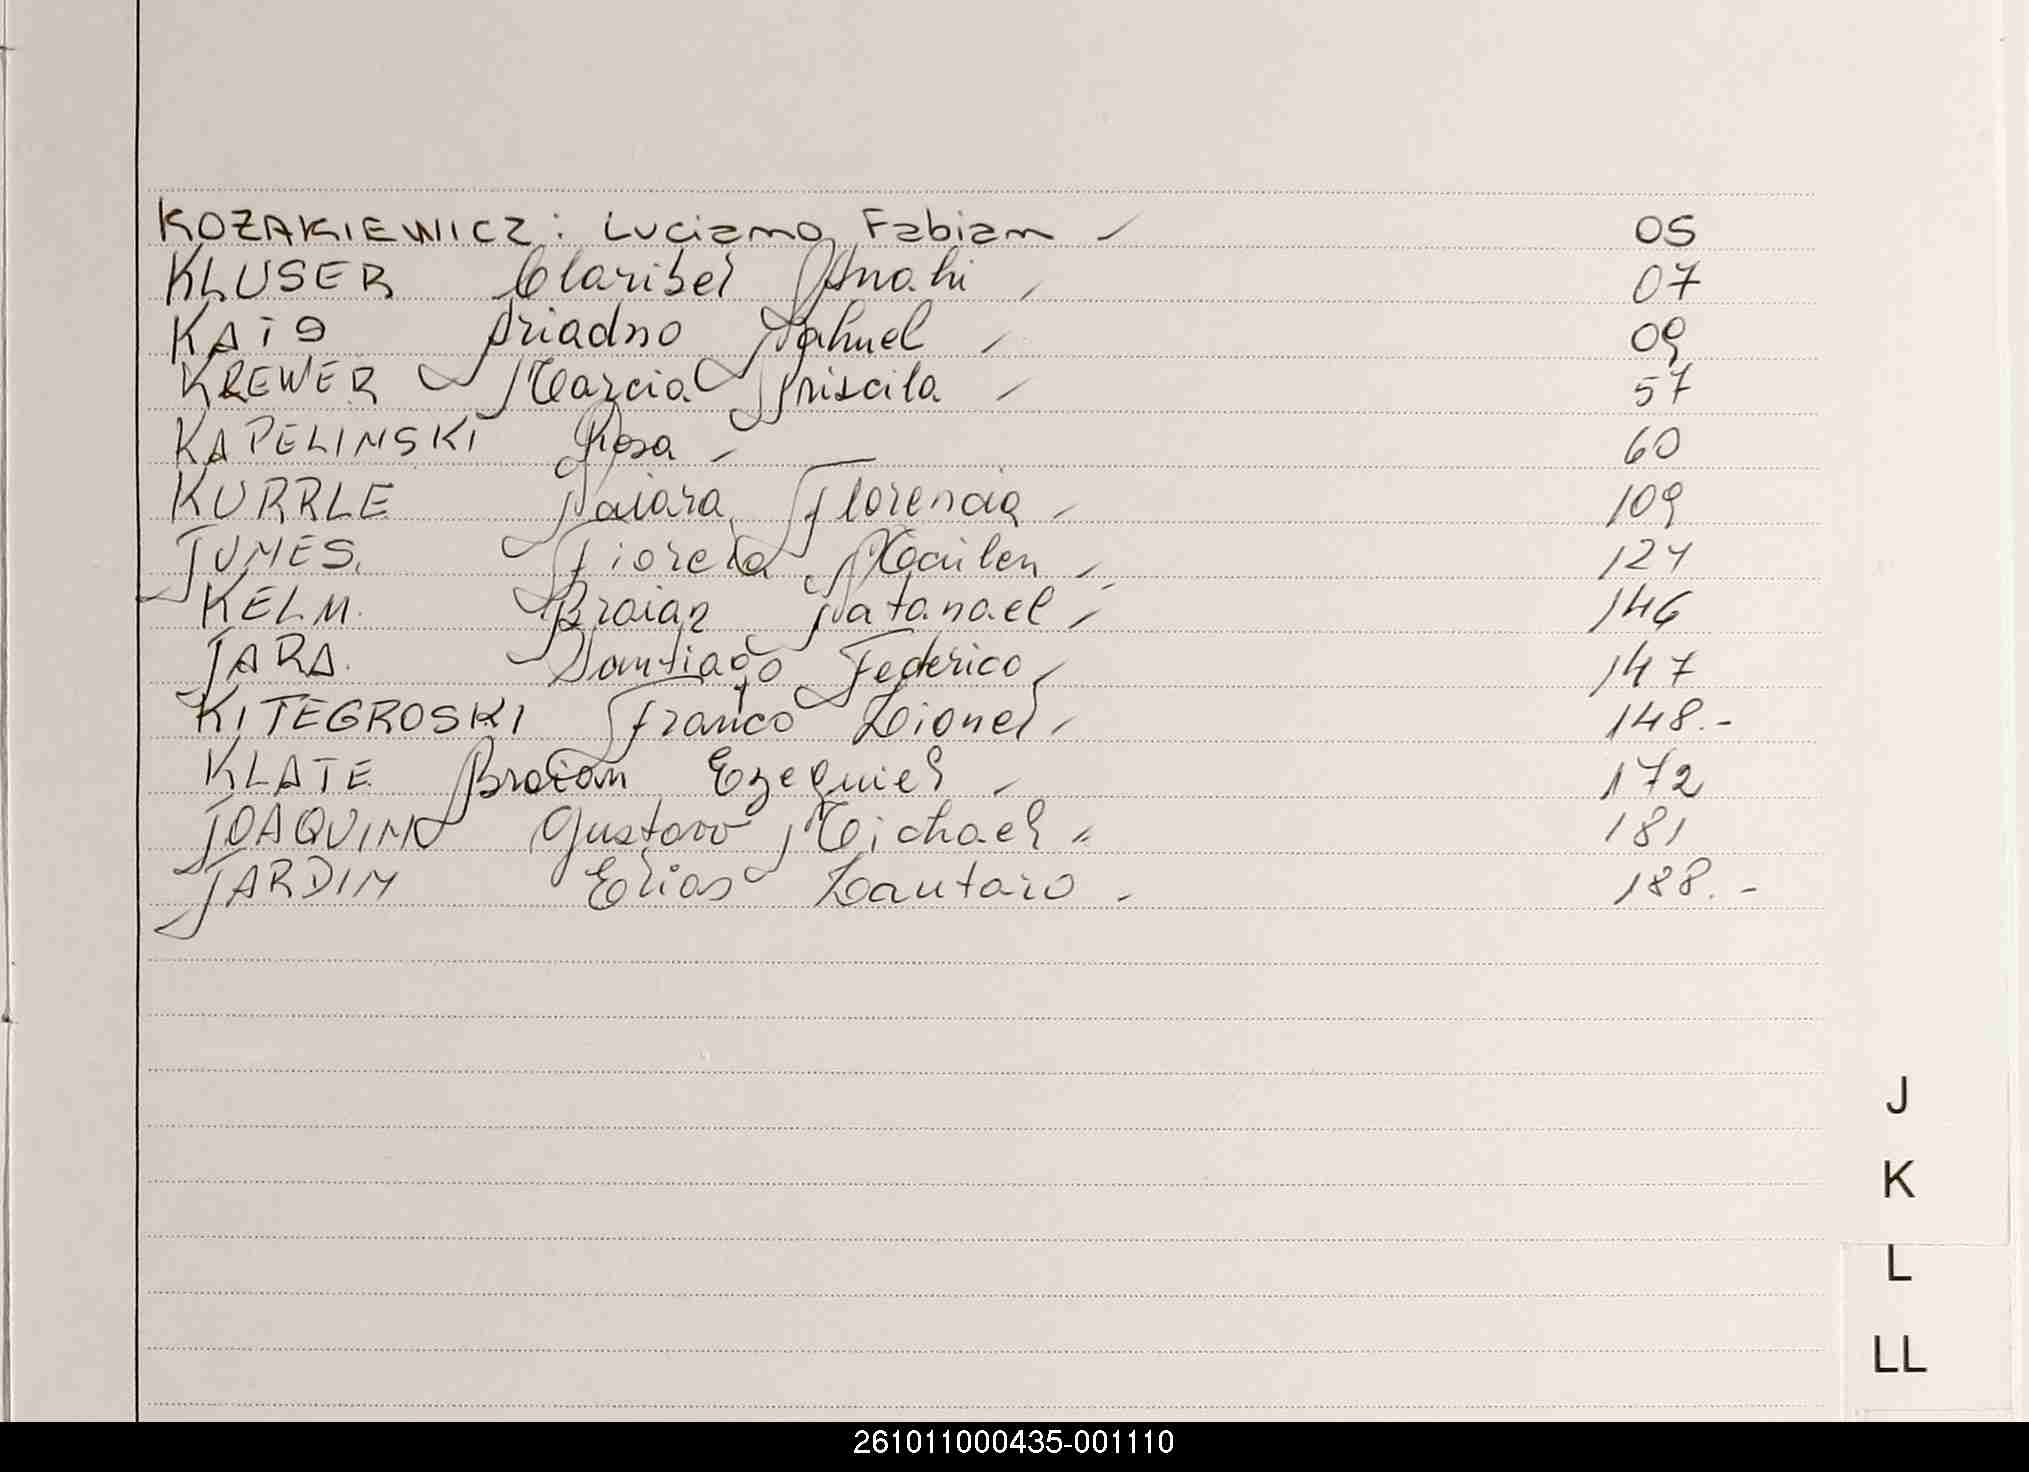 KOZAKIEWICZ: Luciano Fabian 05
KLUSER Claribel Anahi 07
KAIS Ariadno Nahuel 09
KREWER Marcia Priscila 57
KAPELINSKI Rosa 60
KURRLE Naiara Florencia 109
JUMES. Fiorela Mailen 124
KELM. Braian Natanael 146
JARA. Santiago Federico 147
KITEGROSKI Franco Lionel 148.-
KLATE Braian Ezequiel 172
JOAQUIM Gustavo Michael 181
JARDIM Elias Lautaro 188.-
J
K
L
LL
261011000435-001110